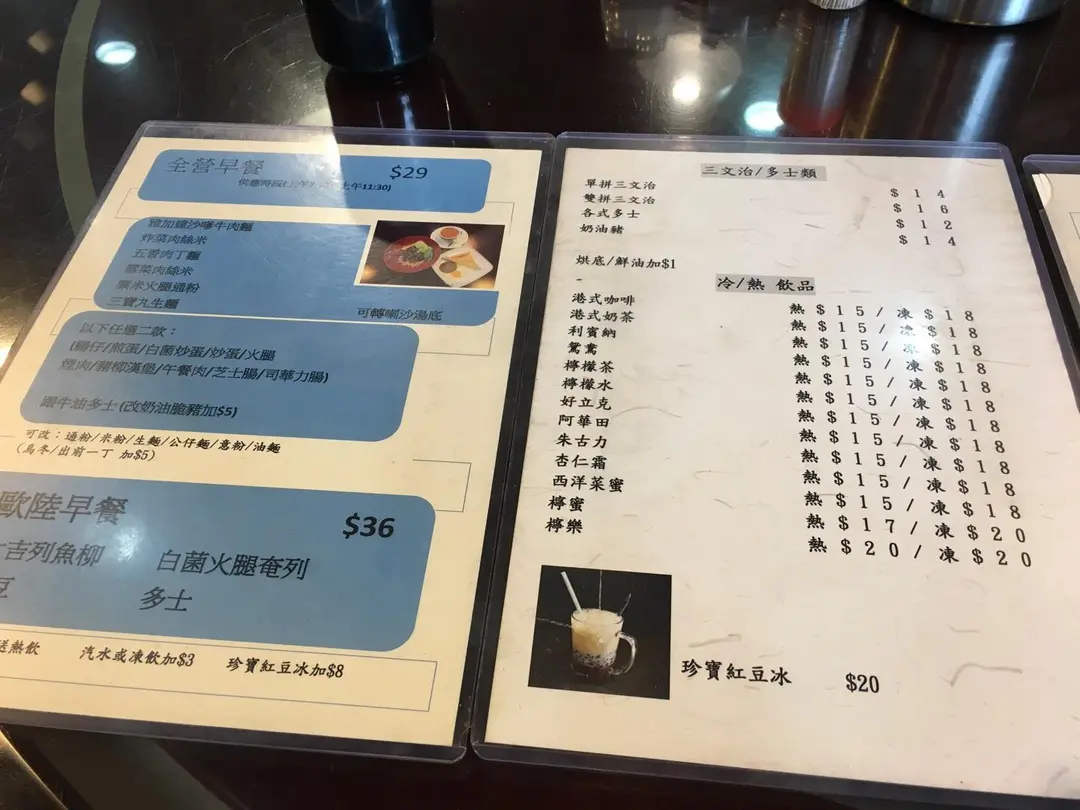 全營早餐 $29
午11:30)
雅加達沙嗲牛肉麵
炸菜肉絲米
五香肉丁麵
雪菜肉絲米
粟米火腿通粉
三寶丸生麵
可轉喇沙湯底
以下任選二款：
(腸仔/煎蛋/白菌炒蛋/炒蛋/火腿
煙肉/豬柳漢堡/午餐肉/芝士腸/司華力腸)
跟牛油多士(改奶油脆豬加$5)
可改：通粉/米粉/生麵/公仔麵/意粉/油麵
(烏冬/出前一丁 加$5)
歐陸早餐 $36
吉列魚柳 白菌火腿奄列
豆 多士
送熱飲 汽水或凍飲加$3 珍寶紅豆冰加$8
三文治/多士類
單拼三文治 $14
雙拼三文治 $16
各式多士 $12
奶油豬 $14
烘底/鮮油加$1
冷/熱 飲品
港式咖啡 熱$15/凍$18
港式奶茶 熱$15/凍$18
利賓納 熱$15/凍$18
鴛鴦 熱$15/凍$18
檸檬茶 熱$15/凍$18
檸檬水 熱$15/凍$18
好立克 熱$15/凍$18
阿華田 熱$15/凍$18
朱古力 熱$15/凍$18
杏仁霜 熱$15/凍$18
西洋菜蜜 熱$15/凍$18
檸蜜 熱$17/凍$20
檸樂 熱$20/凍$20
珍寶紅豆冰 $20